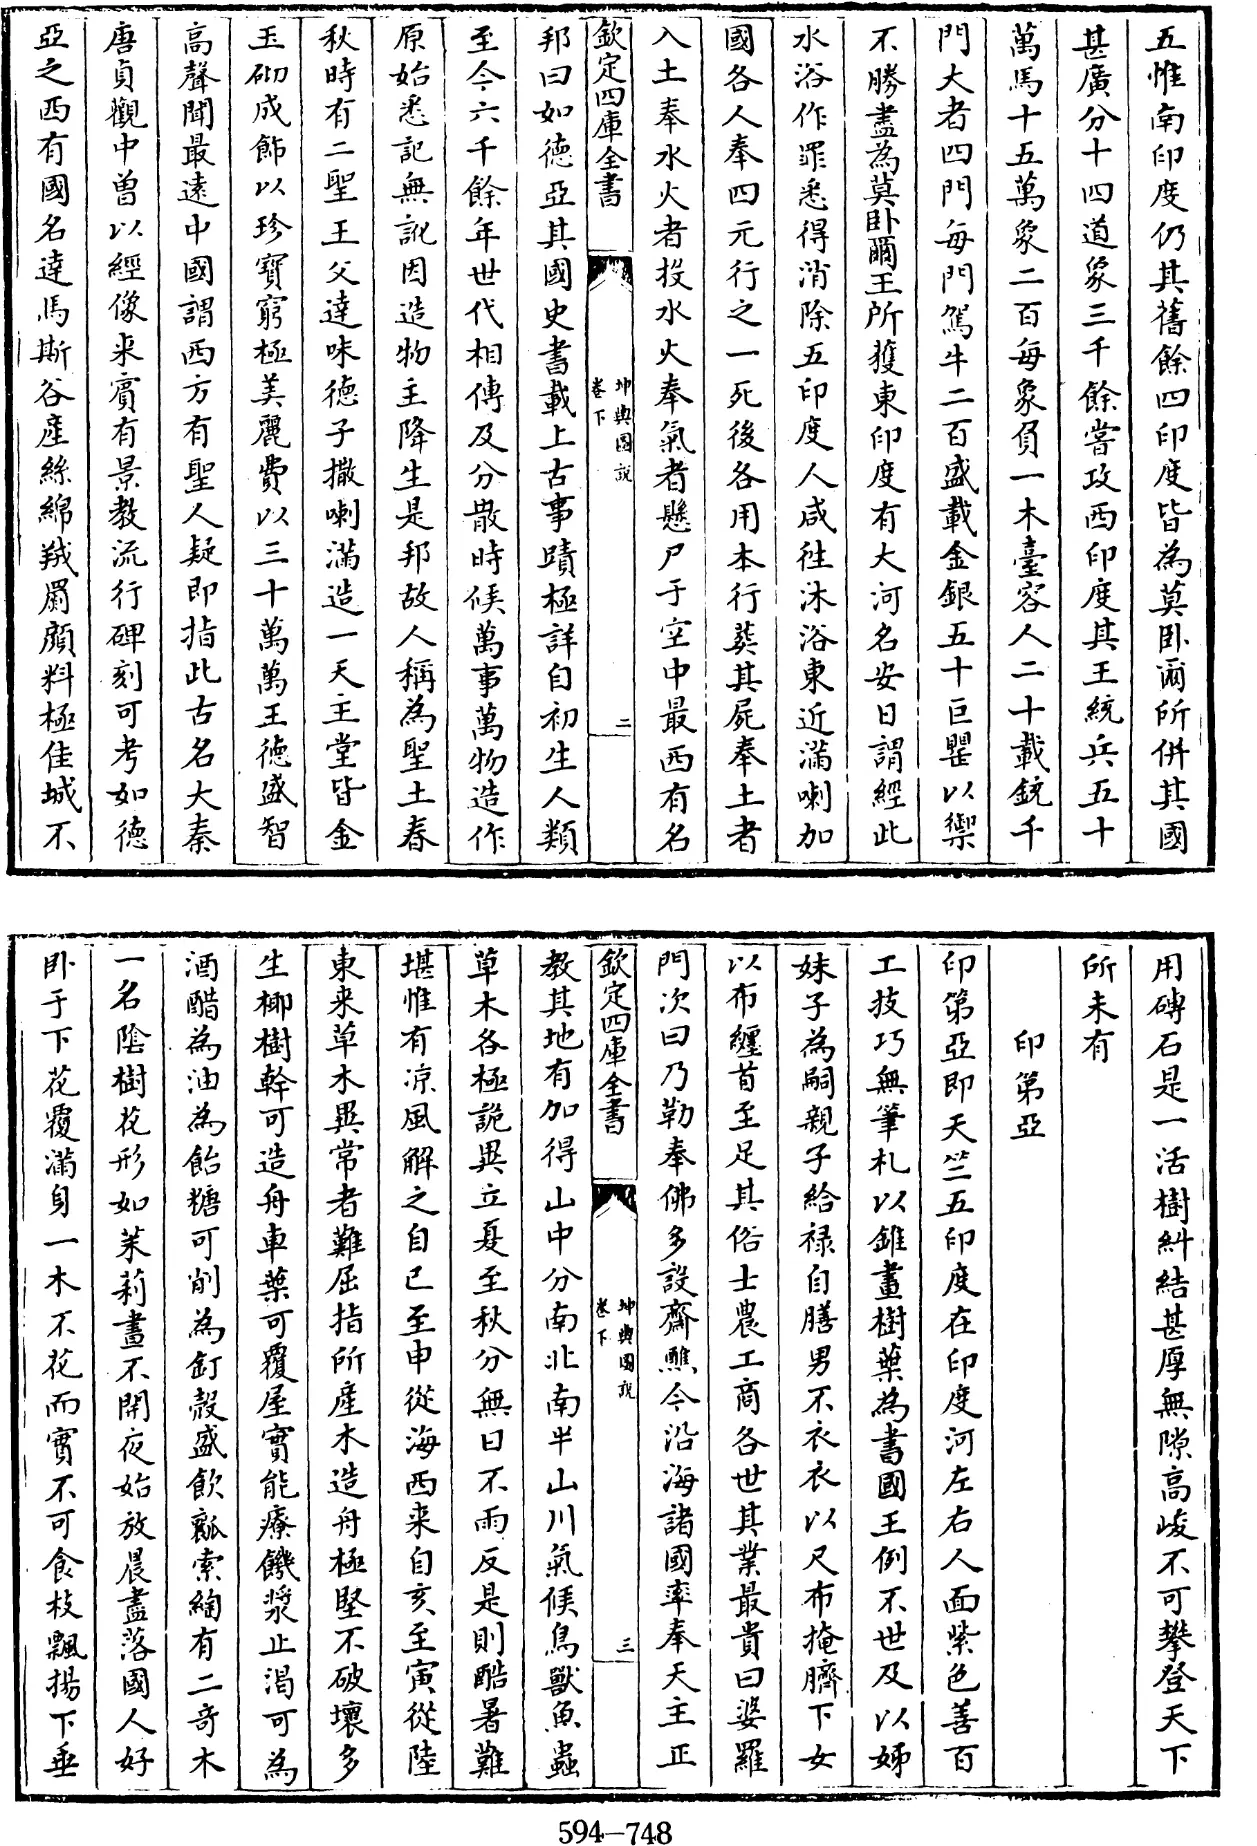 五惟南印度仍其舊餘四印度皆為莫卧爾所併其國
甚廣分十四道象三千餘嘗攻西印度其王統兵五十
萬馬十五萬象二百每象負一木臺容人二十載銃千
門大者四門每門駕牛二百盛載金銀五十巨罌以禦
不勝盡為莫卧爾王所獲東印度有大河名安日謂經此
水浴作罪悉得消除五印度人咸徃沐浴東近滿喇加
國各人奉四元行之一死後各用本行葬其屍奉土者
入土奉水火者投水火奉氣者懸尸于空中最西有名
欽定四庫全書
坤輿圖說
卷下
二
邦曰如德亞其國史書載上古事蹟極詳自初生人類
至今六千餘年世代相傳及分散時候萬事萬物造作
原始悉記無訛因造物主降生是邦故人稱為聖土春
秋時有二聖王父達味德子撒喇滿造一天主堂皆金
玉砌成飾以珍寶窮極美麗費以三十萬萬王德盛智
高聲聞最遠中國謂西方有聖人疑即指此古名大秦
唐貞觀中曾以經像来賓有景教流行碑刻可考如德
亞之西有國名達馬斯谷產絲綿羢罽顔料極佳城不
用磚石是一活樹糾結甚厚無隙高峻不可攀登天下
所未有
印第亞
印第亞即天竺五印度在印度河左右人面紫色善百
工技巧無筆札以錐畫樹葉為書國王例不世及以姊
妹子為嗣親子給禄自膳男不衣衣以尺布掩臍下女
以布纒首至足其俗士農工商各世其業最貴曰婆羅
門次曰乃勒奉佛多設齋醮今沿海諸國率奉天主正
欽定四庫全書
坤輿圖說
卷下
三
教其地有加得山中分南北南半山川氣候鳥獸魚蟲
草木各極詭異立夏至秋分無日不雨反是則酷暑難
堪惟有凉風解之自已至申從海西来自亥至寅從陸
東来草木異常者難屈指所產木造舟極堅不破壞多
生椰樹幹可造舟車葉可覆屋實能療饑漿止渴可為
酒醋為油為飴糖可削為釘殼盛飲瓤索綯有二奇木
一名陰樹花形如茉莉晝不開夜始放晨盡落國人好
卧于下花覆滿身一木不花而實不可食枝飄揚下垂
594-748